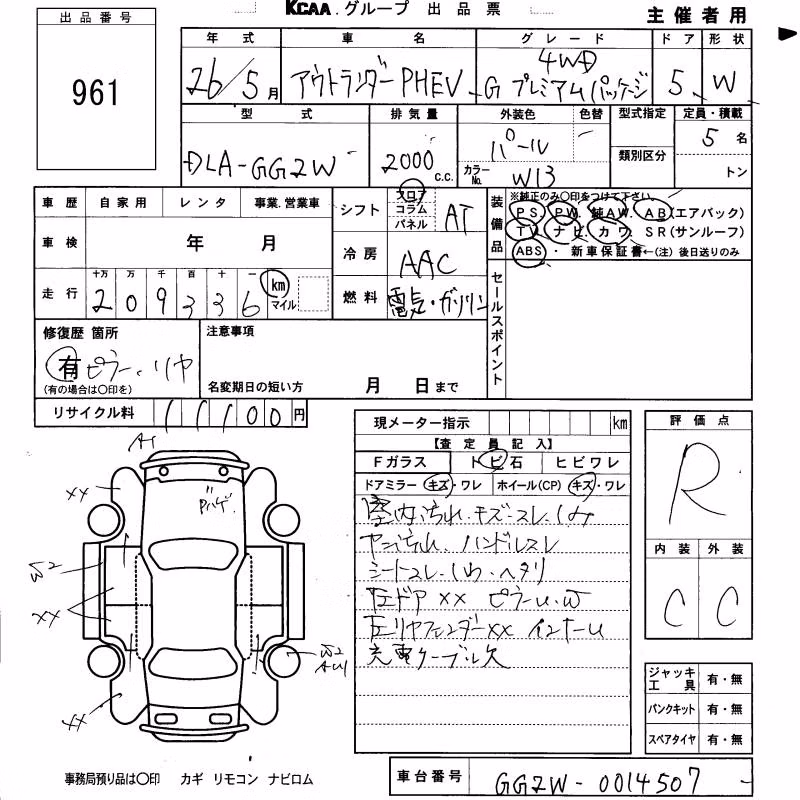 KCAA.グループ 出品票
主催者用
出品番号
961
年式 車名 グレード ドア 形状
26/5月 アウトランダーPHEV 4WD
G プレミアムパッケージ 5 W
型式 排気量 外装色 色替 型式指定 定員・積載
DLA-GG2W 2000 c.c. パール 5名
カラーNo. W13 類別区分 トン
車歴 自家用 レンタ 事業.営業車
シフト フロア コラム パネル AT
装備品 ※純正のみ〇印をつけて下さい。
PS. PW. 純AW. AB(エアバック)
TV ナビ. カワ. SR(サンルーフ)
ABS ・ 新車保証書←(注) 後日送りのみ
車検 年 月
冷房 AAC
走行 十万 万 千 百 十 一
209336 km マイル
燃料 電気・ガソリン
セールスポイント
修復歴 箇所
有 ピラー、リヤ
(有の場合は〇印を)
注意事項
名変期日の短い方 月 日まで
リサイクル料 11100円
現メーター指示 km
【査定員記入】
Fガラス トビ石 ヒビワレ
ドアミラー キズ・ワレ ホイール(CP) キズ・ワレ
室内汚れ.キズ.スレ.シミ
ヤニ汚れ ハンドルスレ
シートスレ.シワ.ヘタリ
左ドア XX ピラーU.W
左リヤフェンダーXX インナーU
充電ケーブル欠
評価点
R
内装 外装
C C
AT
Pハゲ
XX
W2
XX
XX
W2
AU1
ジャッキ 工具 有・無
パンクキット 有・無
スペアタイヤ 有・無
事務局預り品は〇印 カギ リモコン ナビロム
車台番号 GG2W-0014507